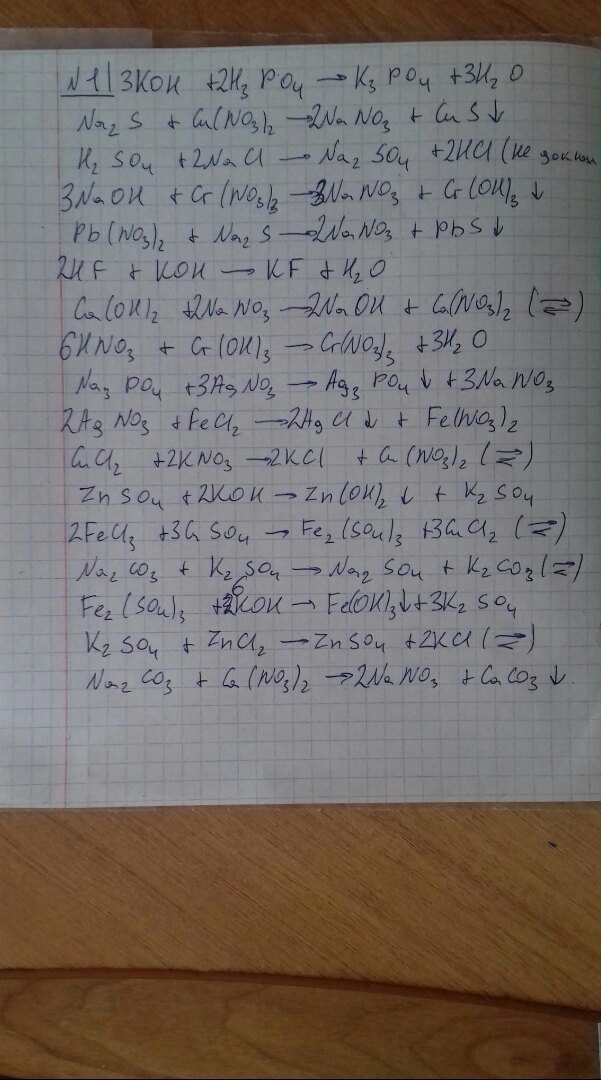 №1 3KOH + 2H₃PO₄ → K₃PO₄ + 3H₂O
Na₂S + Cu(NO₃)₂ → 2NaNO₃ + CuS↓
H₂SO₄ + 2NaCl → Na₂SO₄ + 2HCl (не
3NaOH + Cr(NO₃)₃ → 3NaNO₃ + Cr(OH)₃↓
Pb(NO₃)₂ + Na₂S → 2NaNO₃ + PbS↓
2HF + KOH → KF + H₂O
Ca(OH)₂ + 2NaNO₃ → 2NaOH + Ca(NO₃)₂ (⇄)
6HNO₃ + Cr(OH)₃ → Cr(NO₃)₃ + 3H₂O
Na₃PO₄ + 3AgNO₃ → Ag₃PO₄↓ + 3NaNO₃
2AgNO₃ + FeCl₂ → 2AgCl↓ + Fe(NO₃)₂
CuCl₂ + 2KNO₃ → 2KCl + Cu(NO₃)₂ (⇄)
ZnSO₄ + 2KOH → Zn(OH)₂↓ + K₂SO₄
2FeCl₃ + 3CuSO₄ → Fe₂(SO₄)₃ + 3CuCl₂ (⇄)
Na₂CO₃ + K₂SO₄ → Na₂SO₄ + K₂CO₃ (⇄)
Fe₂(SO₄)₃ + 6KOH → Fe(OH)₃↓ + 3K₂SO₄
K₂SO₄ + ZnCl₂ → ZnSO₄ + 2KCl (⇄)
Na₂CO₃ + Ca(NO₃)₂ → 2NaNO₃ + CaCO₃↓